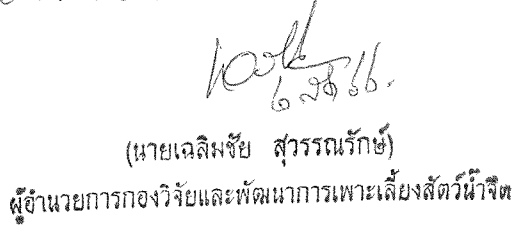 (นายเฉลิมชัย สุวรรณรักษ์)
ผู้อำนวยการกองวิจัยและพัฒนาการเพาะเลี้ยงสัตว์น้ำจืด